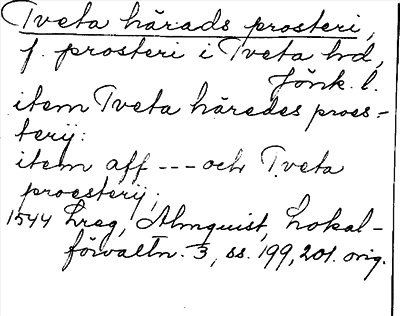 Tveta härads prosteri,
f. prosteri i Tveta hd,
Jönk. l.
item Tveta häredes proes-
terij:
item aff --- och Tveta
proesterij;
1544 Lreg, Almquist, Lokal-
förvaltn. 3, ss. 199, 201. orig.